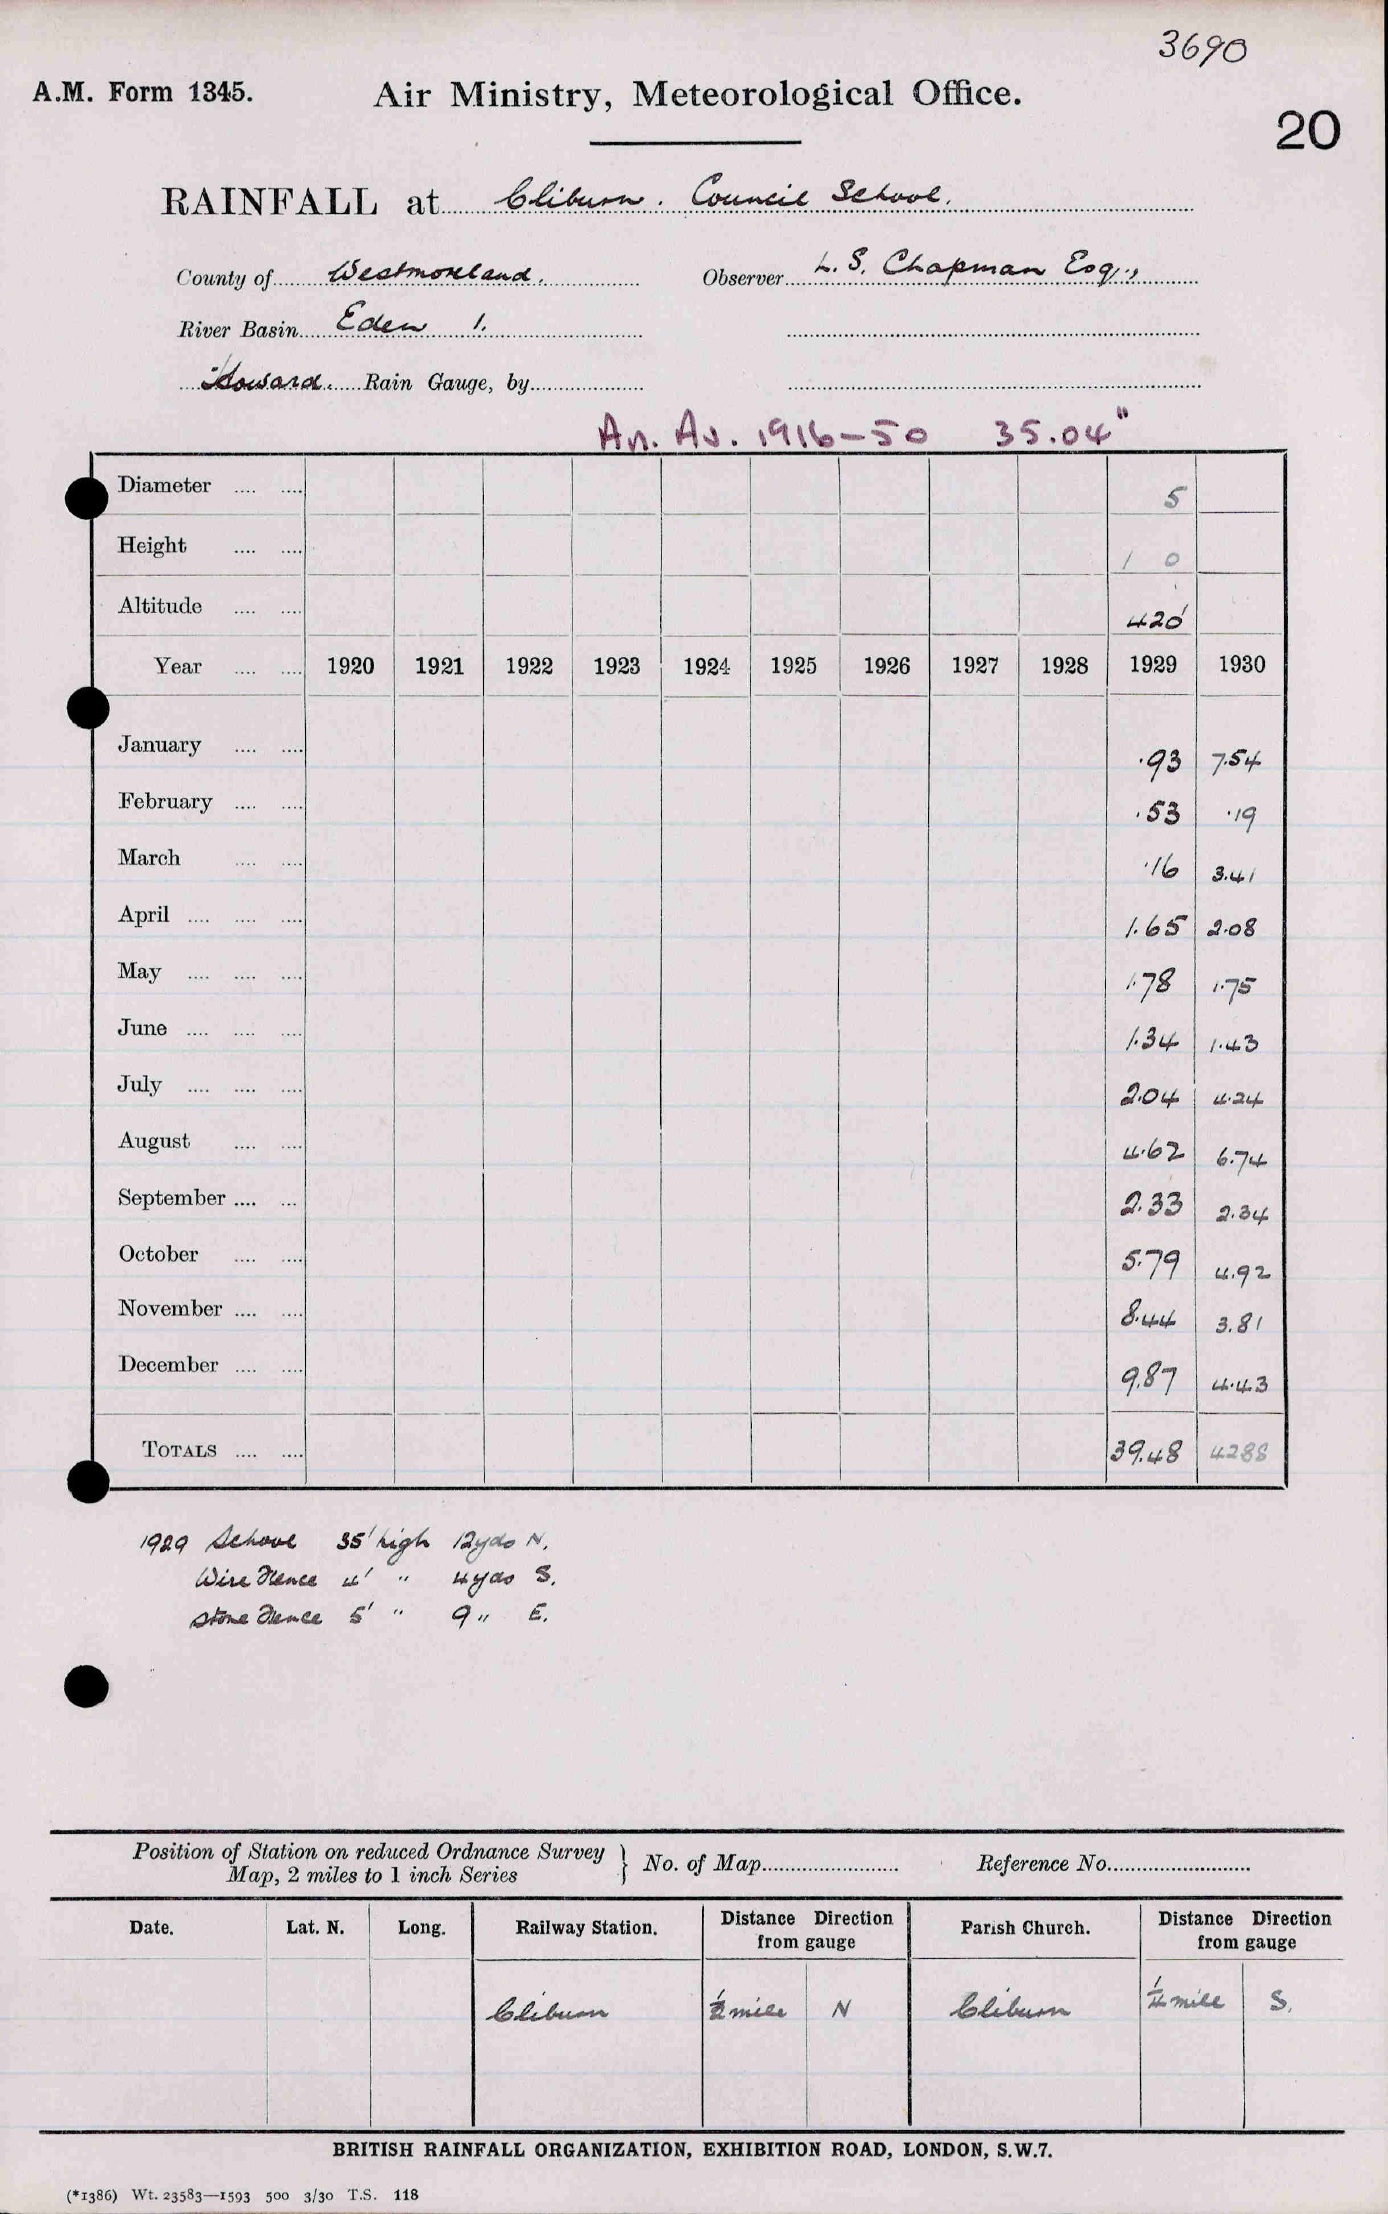 3690
A.M. Form 1345. Air Ministry, Meteorological Office.
20
RAINFALL at Cliburn. Council School.
County of Westmoreland. Observer L. S. Chapman Esq.,
River Basin Eden 1.
Howard. Rain Gauge, by
An. Av. 1916-50 35.04"
Diameter .... .... 5
Height .... .... 1 0
Altitude .... .... 420'
Year .... .... 1920 1921 1922 1923 1924 1925 1926 1927 1928 1929 1930
January .... .... .93 7.54
February .... .... .53 .19
March .... .... .16 3.41
April .... .... .... 1.65 2.08
May .... .... .... 1.78 1.75
June .... .... .... 1.34 1.43
July .... .... .... 2.04 4.24
August .... .... 4.62 6.74
September .... .... 2.33 2.34
October .... .... 5.79 4.92
November .... .... 8.44 3.81
December .... .... 9.87 4.43
TOTALS .... .... 39.48 4288
1929 School 35' high 12yds N.
Wire Fence 4' " 4yds S.
Stone Fence 5' " 9 " E.
Position of Station on reduced Ordnance Survey
Map, 2 miles to 1 inch Series } No. of Map Reference No.
Date. Lat. N. Long. Railway Station. Distance Direction from gauge Parish Church. Distance Direction from gauge
Cliburn ½ mile N Cliburn ¼ mile S.
BRITISH RAINFALL ORGANIZATION, EXHIBITION ROAD, LONDON, S.W.7.
(*1386) Wt. 23583—1593 500 3/30 T.S. 118